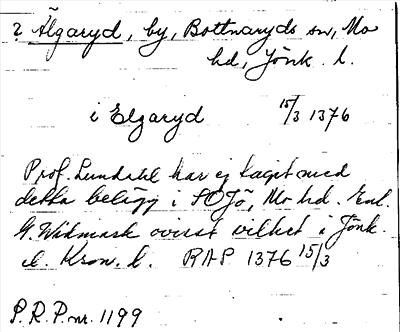 ? Älgaryd, by, Bottnaryds sn, Mo
hd, Jönk. l.
i Elgaryd 15/3 1376
Prof. Lundahl har ej tagit med
detta belägg i SOJö, Mo hd. Enl.
G. Widmark ovisst vilket i Jönk.
el. Kron. l. RAP 1376 15/3
S.R.P. nr. 1199